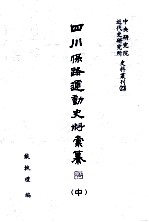 中央研究院
近代史研究所
史料叢刊
四川保路運動史料彙纂
(中)
戴執禮 編